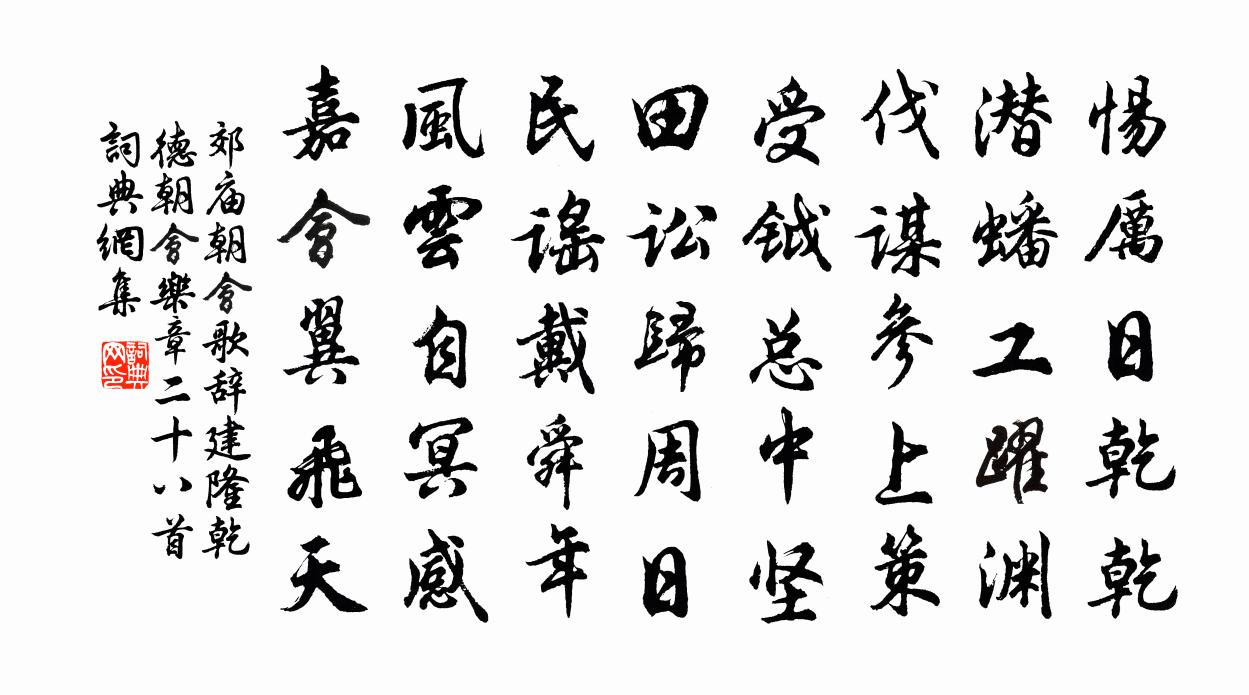 惕厲日乾乾
潜蟠工躍渊
伐谋參上策
受钺总中坚
田讼歸周日
民謠戴舜年
風雲自冥感
嘉會翼飛天
郊庙朝會歌辞建隆乾
德朝會樂章二十八首
詞典網集
詞典网印